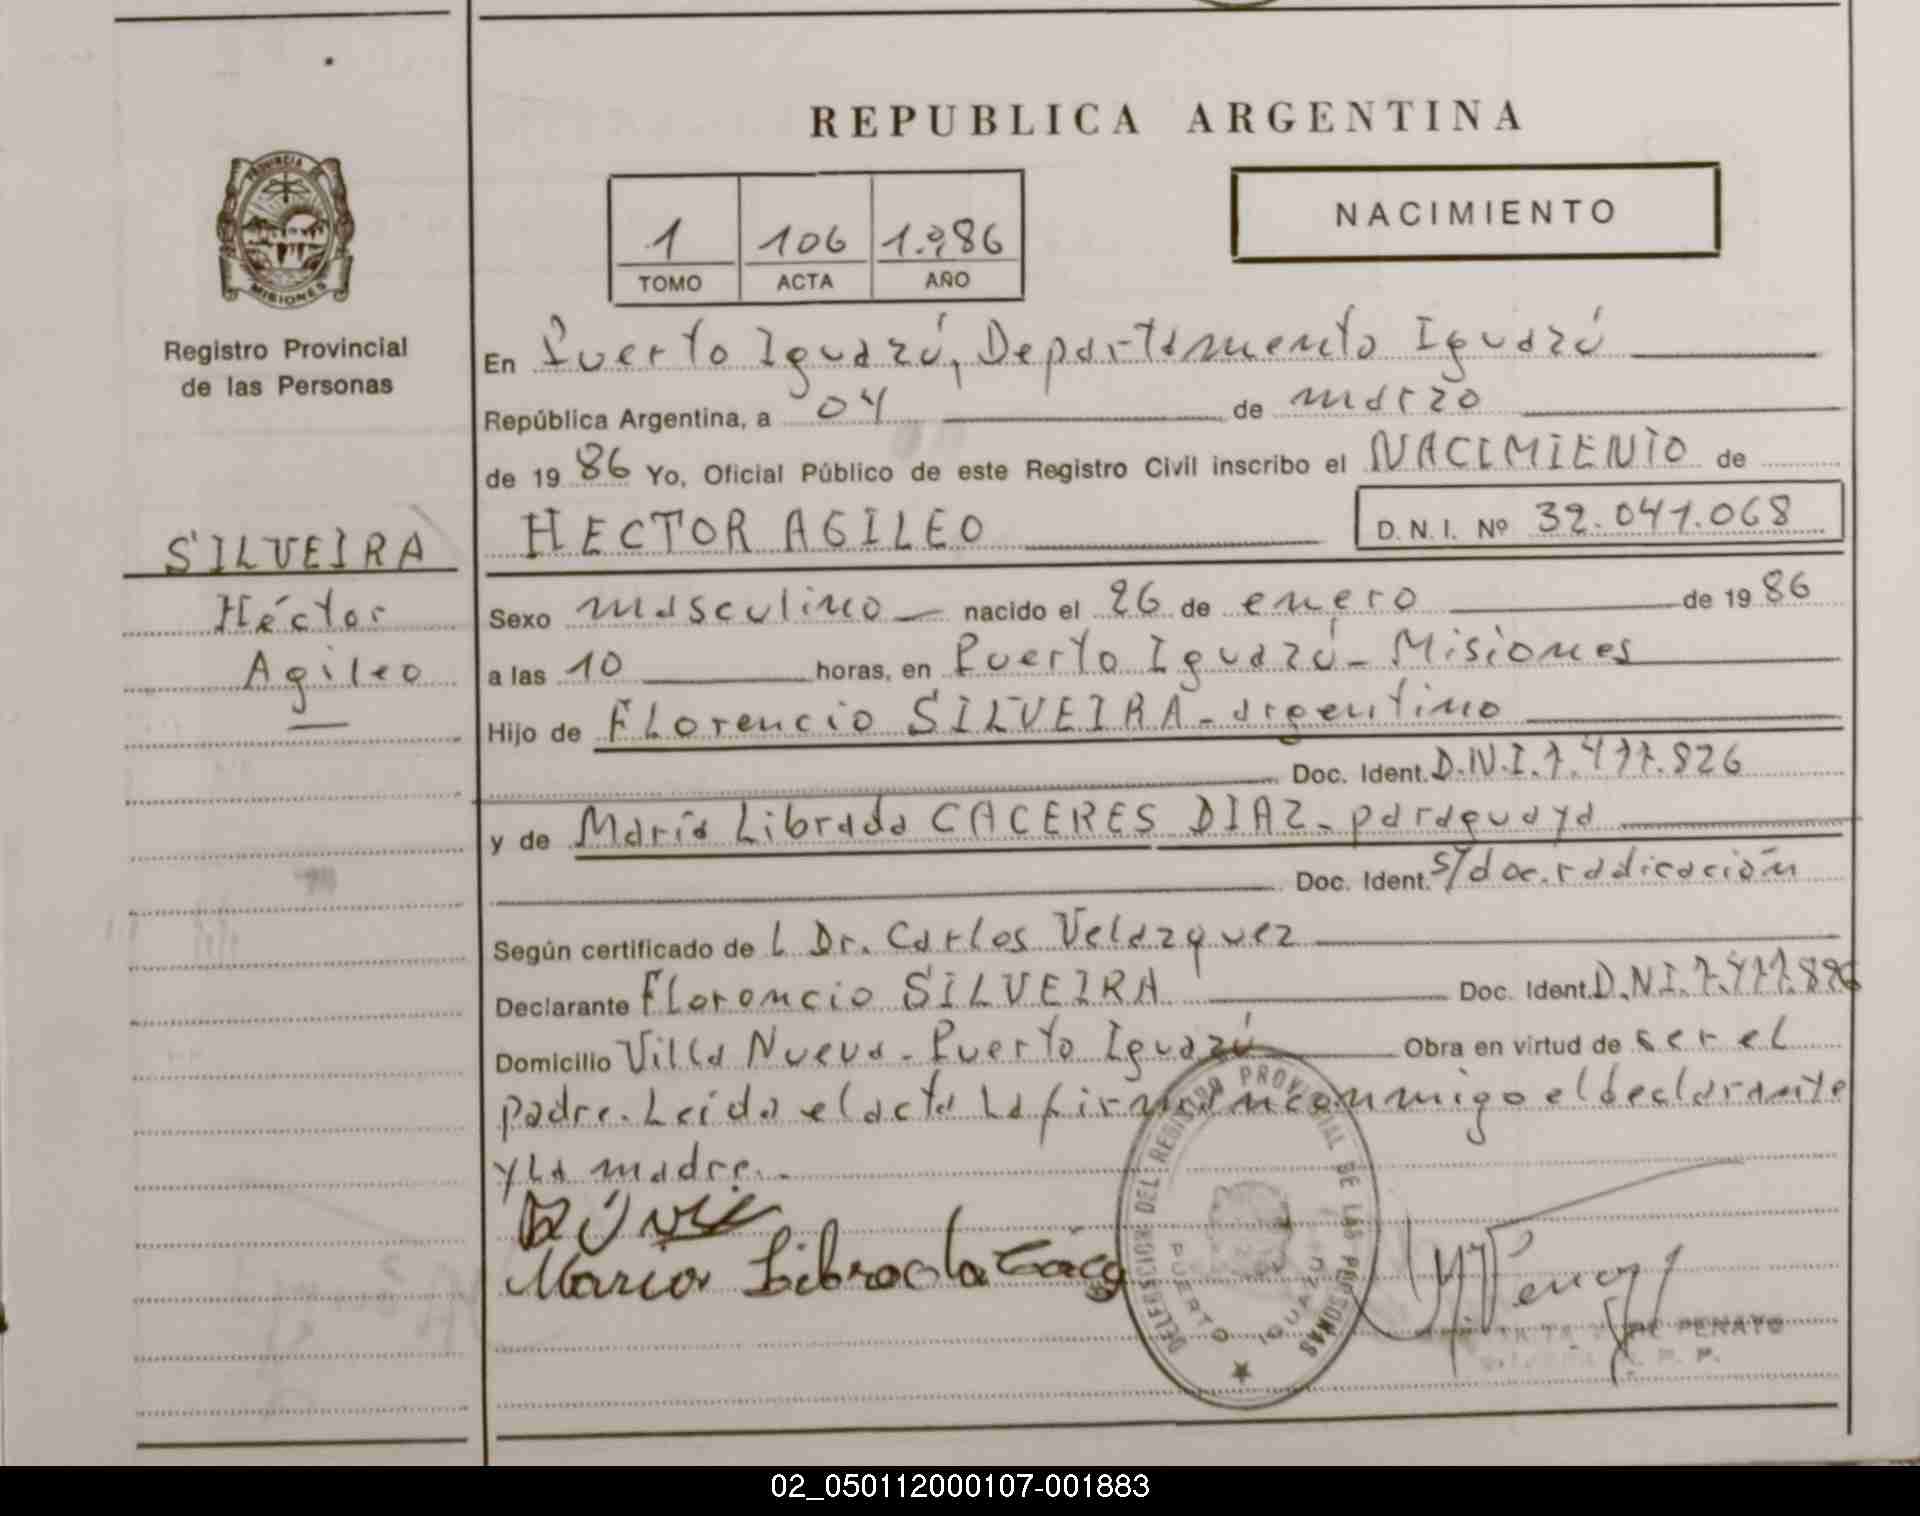 REPUBLICA ARGENTINA
PROVINCIA DE
MISIONES
Registro Provincial
de las Personas
1 106 1.986
TOMO ACTA AÑO
NACIMIENTO
En Puerto Iguazú, Departamento Iguazú
República Argentina, a 04 de marzo
de 19 86 Yo, Oficial Público de este Registro Civil inscribo el NACIMIENTO de
SILVEIRA
Héctor
Agileo
HECTOR AGILEO D.N.I. Nº 32.041.068
Sexo masculino nacido el 26 de enero de 19 86
a las 10 horas, en Puerto Iguazú - Misiones
Hijo de Florencio SILVEIRA - argentino
Doc. Ident. D.N.I. 7.477.826
y de María Librada CACERES DIAZ - paraguaya
Doc. Ident. s/doc. radicación
Según certificado de l Dr. Carlos Velazquez
Declarante Florencio SILVEIRA Doc. Ident. D.N.I. 7.477.826
Domicilio Villa Nueva - Puerto Iguazú Obra en virtud de ser el
padre. Leída el acta la firman conmigo el declarante
y la madre.-
Maria Librada Cáce
DEL REGISTRO PROVINCIAL DE LAS PERSONAS
PUERTO IGUAZU
DE PENAYO
02_050112000107-001883